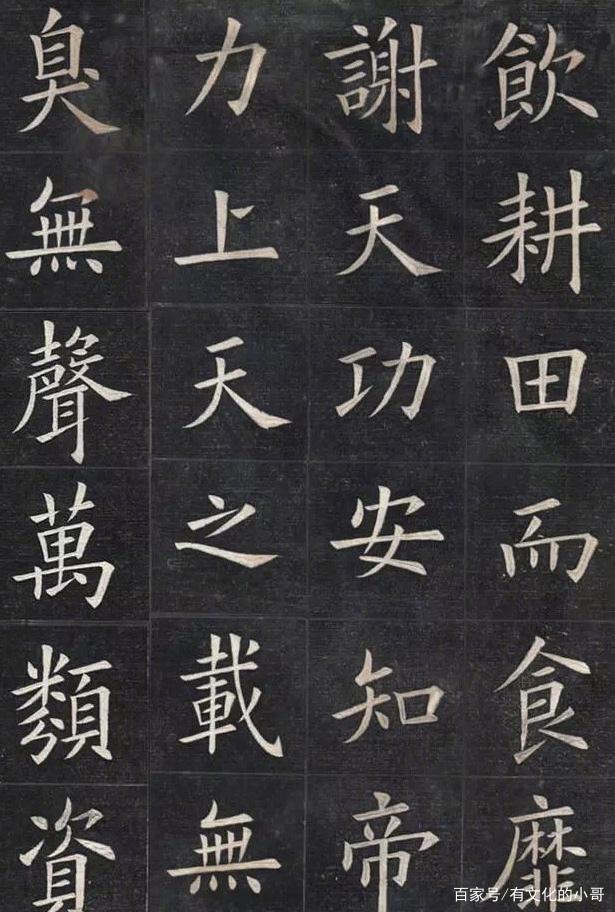 飲耕田而食靡
謝天功安知帝
力上天之載無
臭無聲萬類資
百家号/有文化的小哥